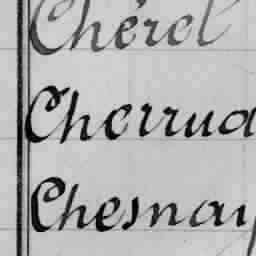 Chérel
Cherrua
Chesnay